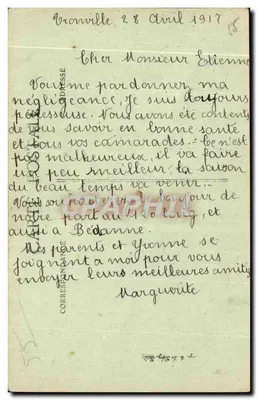 Tronville, 28 Avril 1917
Cher Monsieur Etienne
Vous me pardonnez, ma
négligeance, Je suis toujours
paresseuse. Vous avons été contents
de vous savoir en bonne santé
et tous vos camarades. Ce n'est
pas malheureux, il va faire
un peu meilleur la saison
du beau temps va venir.
Vous
notre part au
et
aussi à Bédanne.
Mes parents et Yvonne se
joignent a moi pour vous
envoyer leurs meilleures amitiés
Marguerite
CARTE POSTALE
CORRESPONDANCE
ADRESSE